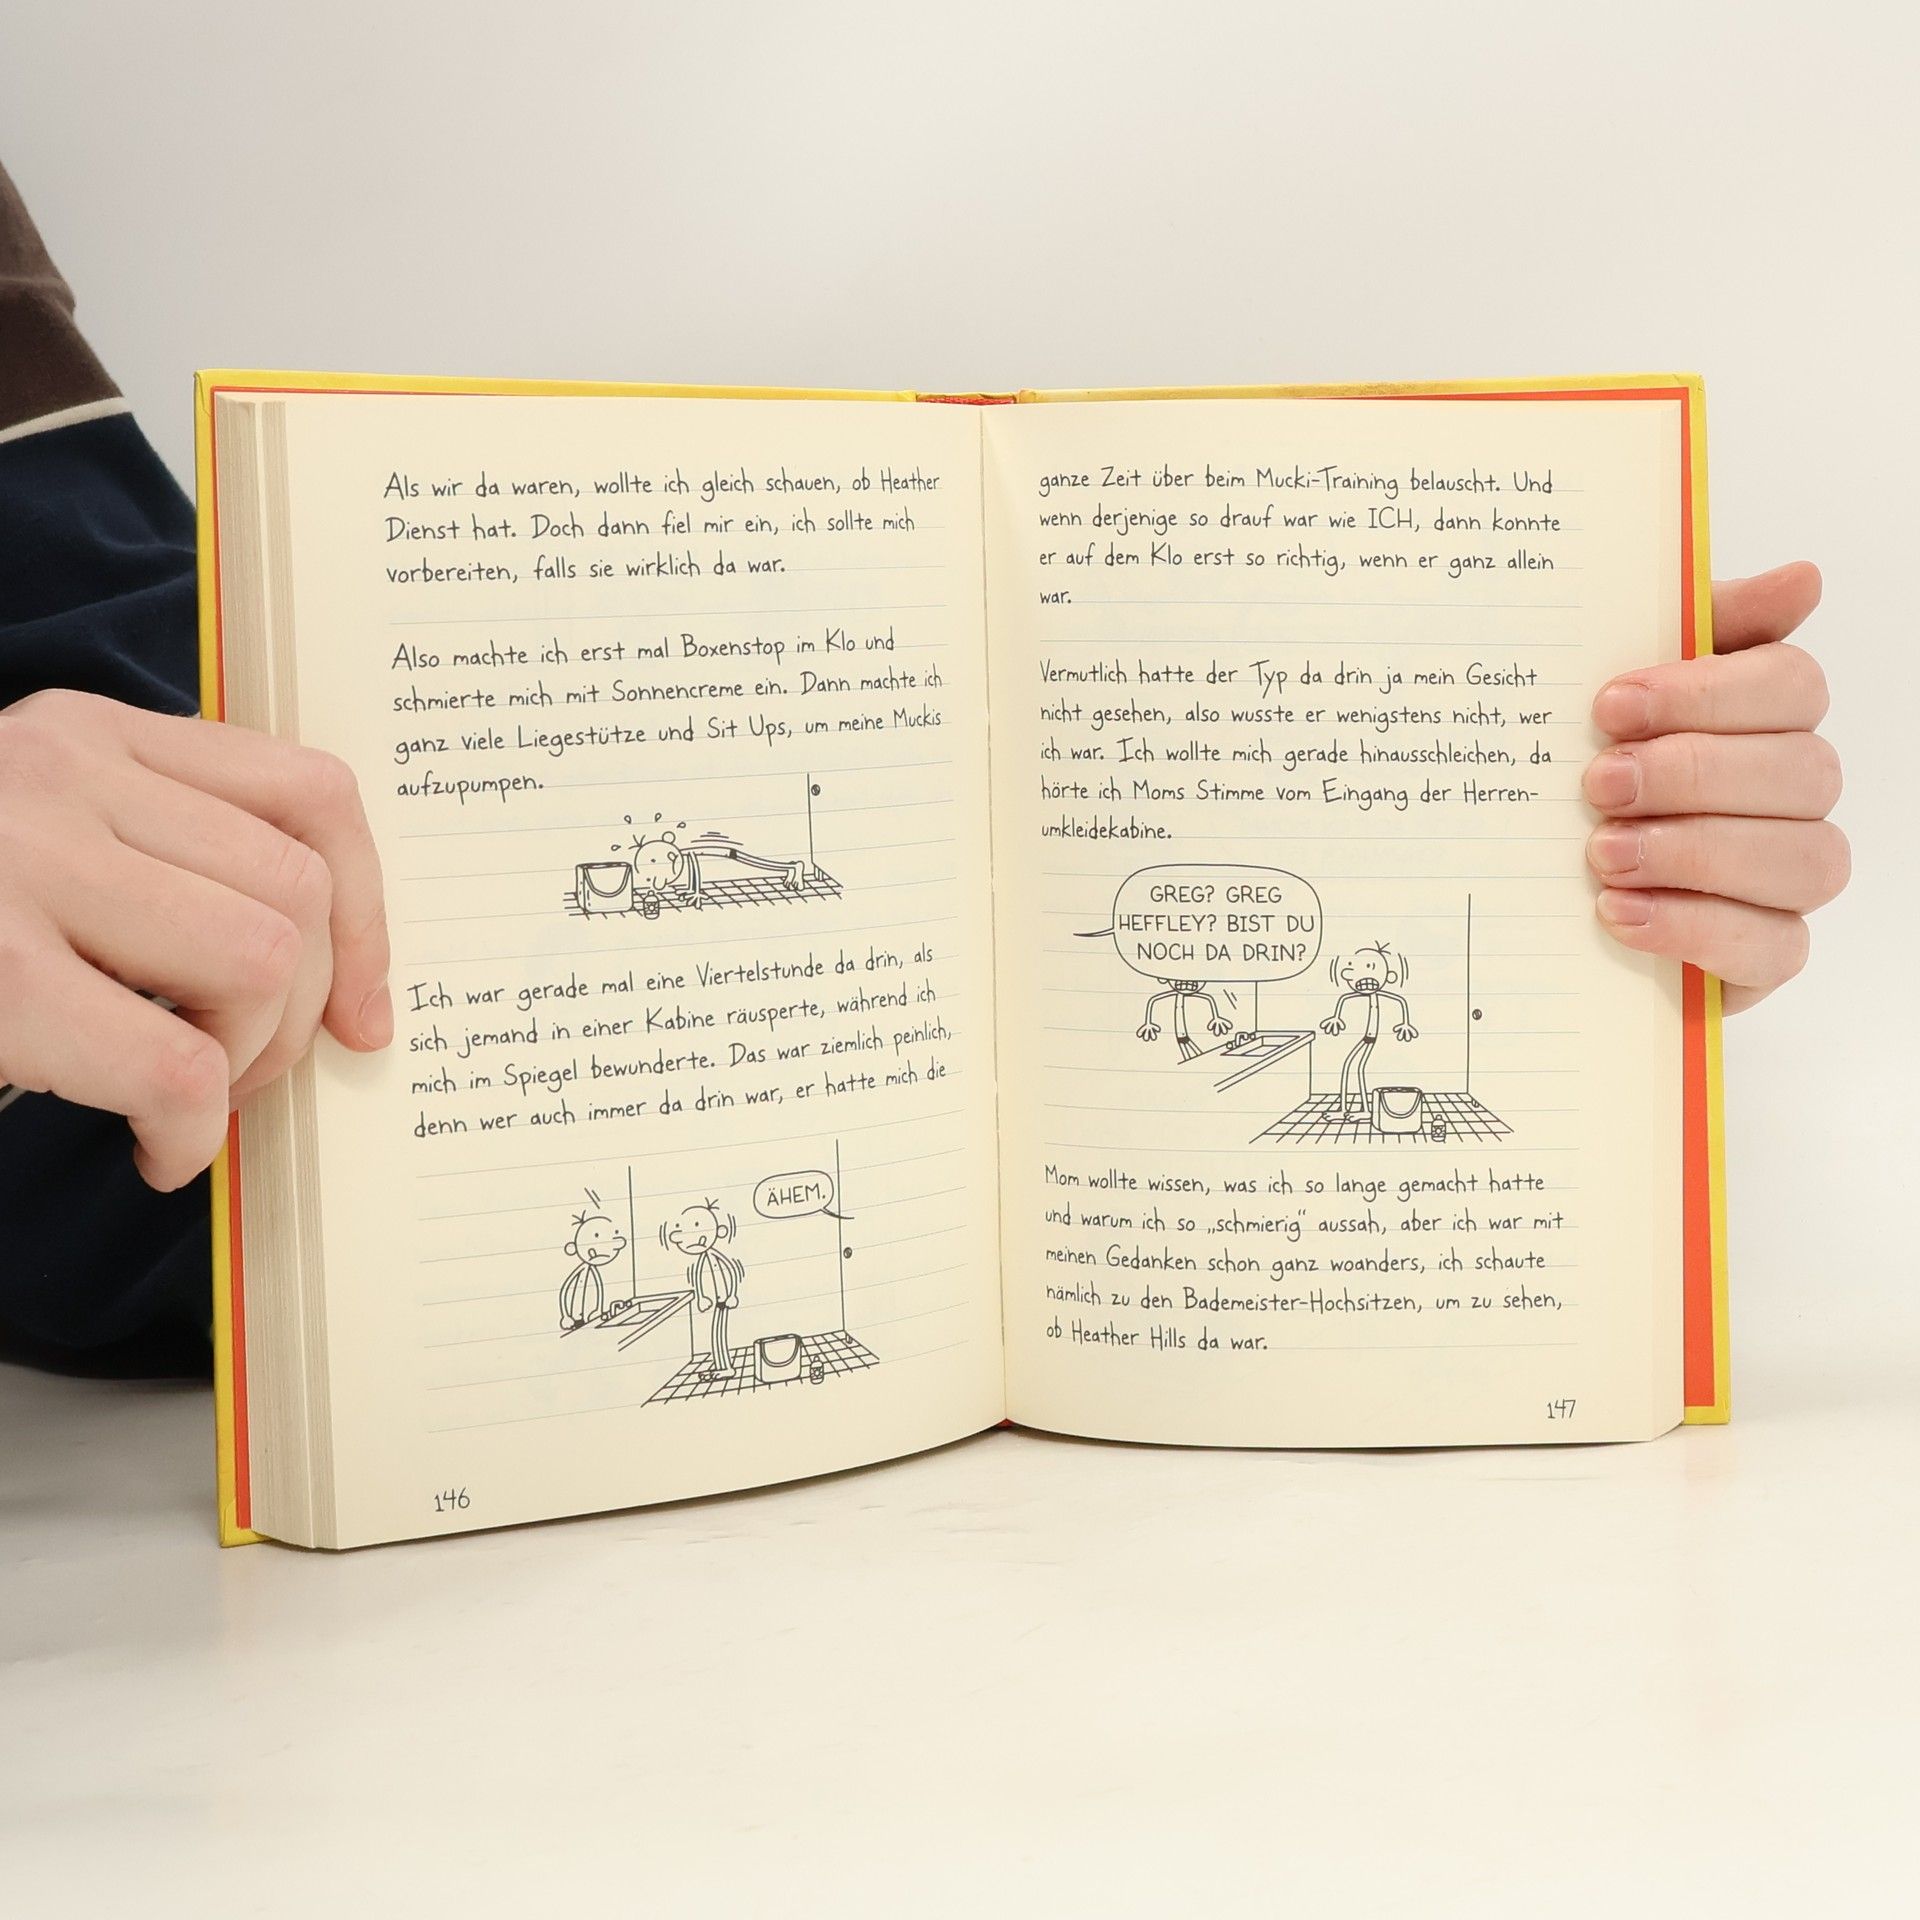 Als wir da waren, wollte ich gleich schauen, ob Heather
Dienst hat. Doch dann fiel mir ein, ich sollte mich
vorbereiten, falls sie wirklich da war.
Also machte ich erst mal Boxenstop im Klo und
schmierte mich mit Sonnencreme ein. Dann machte ich
ganz viele Liegestütze und Sit Ups, um meine Muckis
aufzupumpen.
Ich war gerade mal eine Viertelstunde da drin, als
sich jemand in einer Kabine räusperte, während ich
mich im Spiegel bewunderte. Das war ziemlich peinlich,
denn wer auch immer da drin war, er hatte mich die
ÄHEM.
146
ganze Zeit über beim Mucki-Training belauscht. Und
wenn derjenige so drauf war wie ICH, dann konnte
er auf dem Klo erst so richtig, wenn er ganz allein
war.
Vermutlich hatte der Typ da drin ja mein Gesicht
nicht gesehen, also wusste er wenigstens nicht, wer
ich war. Ich wollte mich gerade hinausschleichen, da
hörte ich Moms Stimme vom Eingang der Herren-
umkleidekabine.
GREG? GREG
HEFFLEY? BIST DU
NOCH DA DRIN?
Mom wollte wissen, was ich so lange gemacht hatte
und warum ich so „schmierig" aussah, aber ich war mit
meinen Gedanken schon ganz woanders, ich schaute
nämlich zu den Bademeister-Hochsitzen, um zu sehen,
ob Heather Hills da war.
147